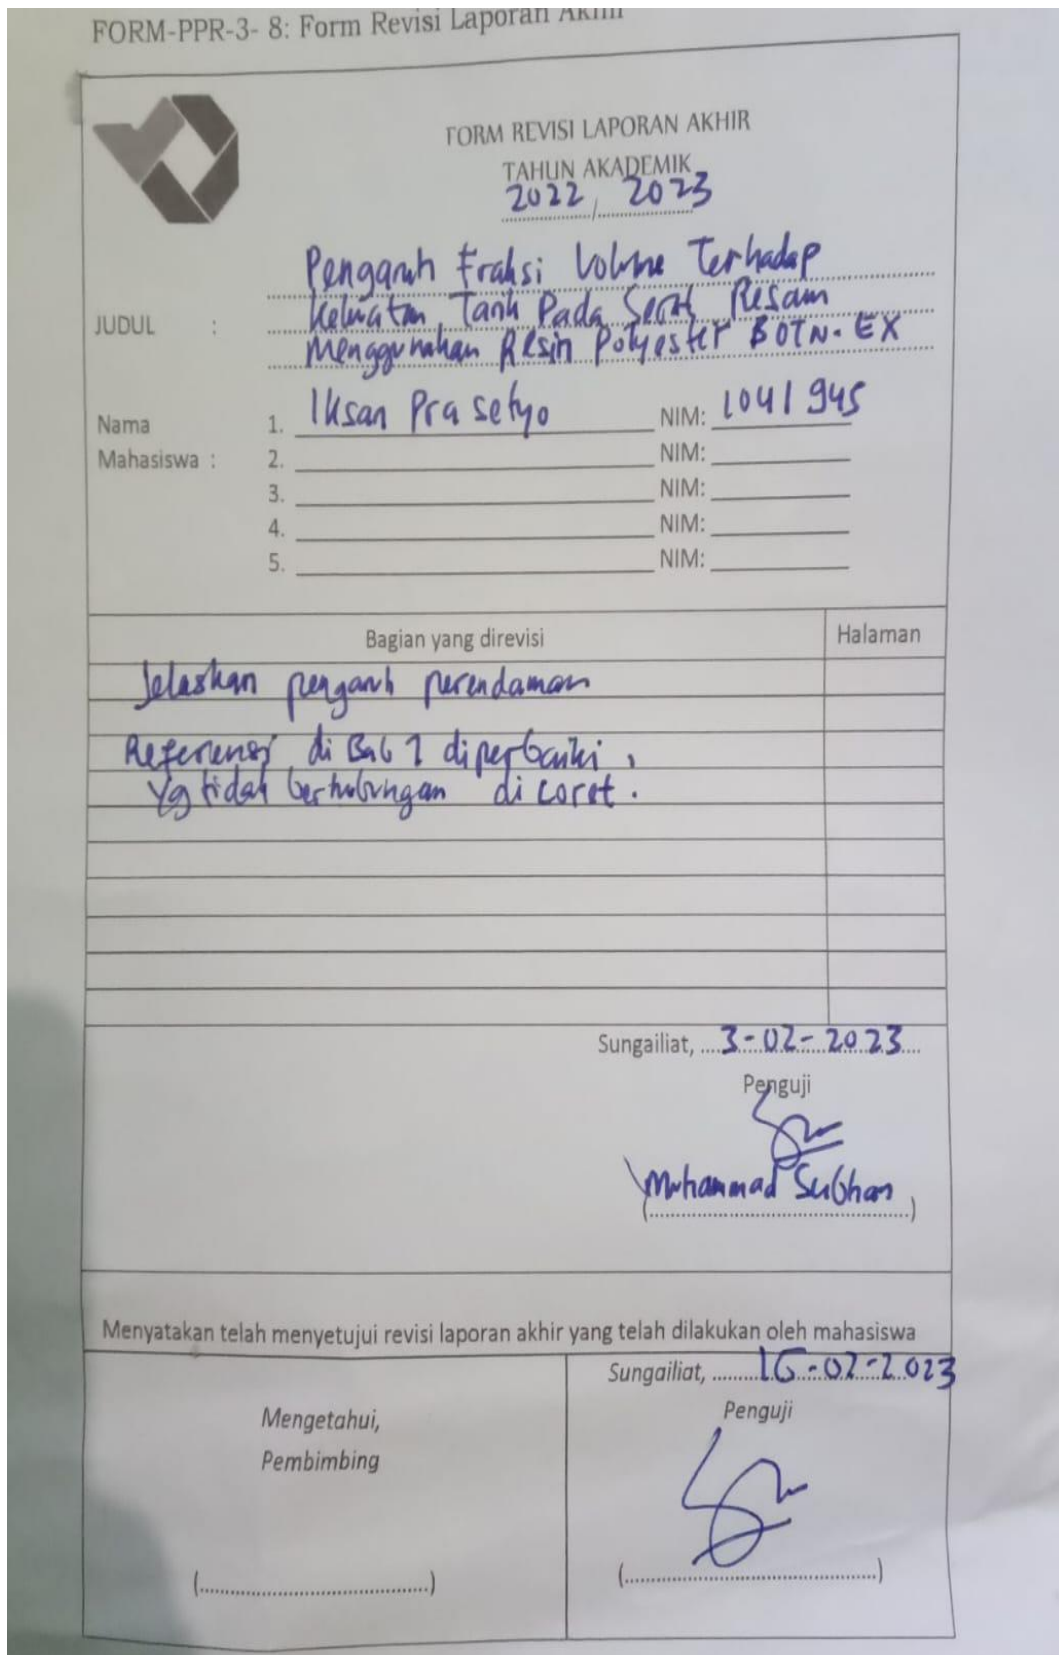 FORM-PPR-3- 8: Form Revisi Laporan Akhir
FORM REVISI LAPORAN AKHIR
TAHUN AKADEMIK
2022 / 2023
JUDUL :
Pengaruh Fraksi Volume Terhadap
Kekuatan Tarik Pada Serat Resam
Menggunakan Resin Polyester BQTN-EX
Nama
Mahasiswa :
1. Iksan Prasetyo NIM: 1041945
2. NIM:
3. NIM:
4. NIM:
5. NIM:
Bagian yang direvisi Halaman
Jelaskan pengaruh perendaman
Referensi di Bab 2 diperbaiki,
Yg tidak berhubungan di coret.
Sungailiat, 3-02-2023
Penguji
Muhammad Subhan
(..........)
Menyatakan telah menyetujui revisi laporan akhir yang telah dilakukan oleh mahasiswa
Mengetahui,
Pembimbing
(..........)
Sungailiat, 16-02-2023
Penguji
(..........)